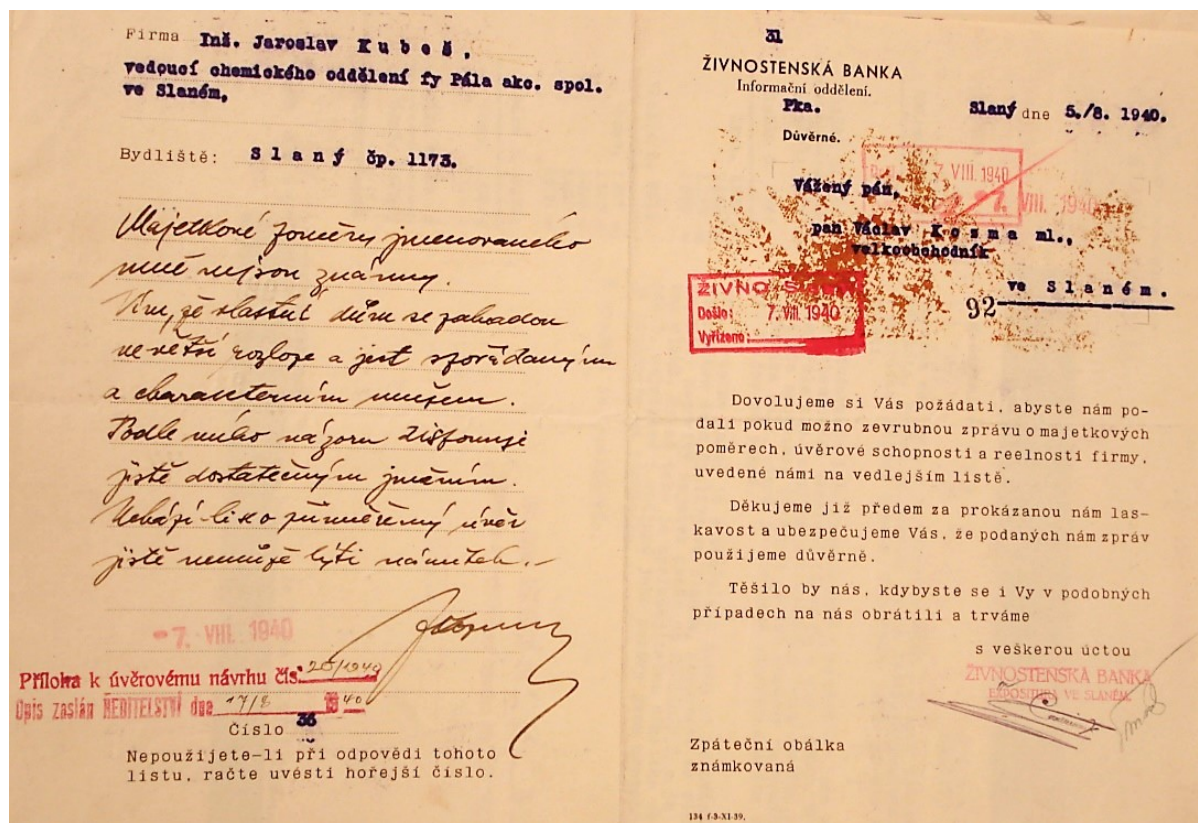 Firma Inž. Jaroslav Kubeš,
vedoucí chemického oddělení fy Pála akc. spol.
ve Slaném,
Bydliště: Slaný čp. 1173.
Majetkové poměry jmenovaného
mně nejsou známy.
Vím, že vlastní dům se zahradou
ve větší rozloze a jest spořádaným
a charakterním mužem.
Podle mého názoru disponuje
jistě dostatečným jměním.
Nebází-li se o přiměřený úvěr
jistě nemůže býti námitek.-
7. VIII. 1940
Příloha k úvěrovému návrhu čís. 20/1940
Opis zaslán ŘEDITELSTVÍ dne 17/8 1940
Číslo 36
Nepoužijete-li při odpovědi tohoto
listu, račte uvésti hořejší číslo.
31
ŽIVNOSTENSKÁ BANKA
Informační oddělení.
Pka.
Slaný dne 5./8. 1940.
Důvěrné.
7. VIII. 1940
7. VIII. 1940
Vážený pán,
pan Václav Kozma ml.,
velkoobchodník
ve Slaném.
92
ŽIVNO
Došlo: 7. VIII. 1940
Vyřízeno:
Dovolujeme si Vás požádati, abyste nám po-
dali pokud možno zevrubnou zprávu o majetkových
poměrech, úvěrové schopnosti a reelnosti firmy,
uvedené námi na vedlejším listě.
Děkujeme již předem za prokázanou nám las-
kavost a ubezpečujeme Vás, že podaných nám zpráv
použijeme důvěrně.
Těšilo by nás, kdybyste se i Vy v podobných
případech na nás obrátili a trváme
s veškerou úctou
ŽIVNOSTENSKÁ BANKA
EXPOSITURA VE SLANÉM.
Zpáteční obálka
známkovaná
134 f-3-XI-39.